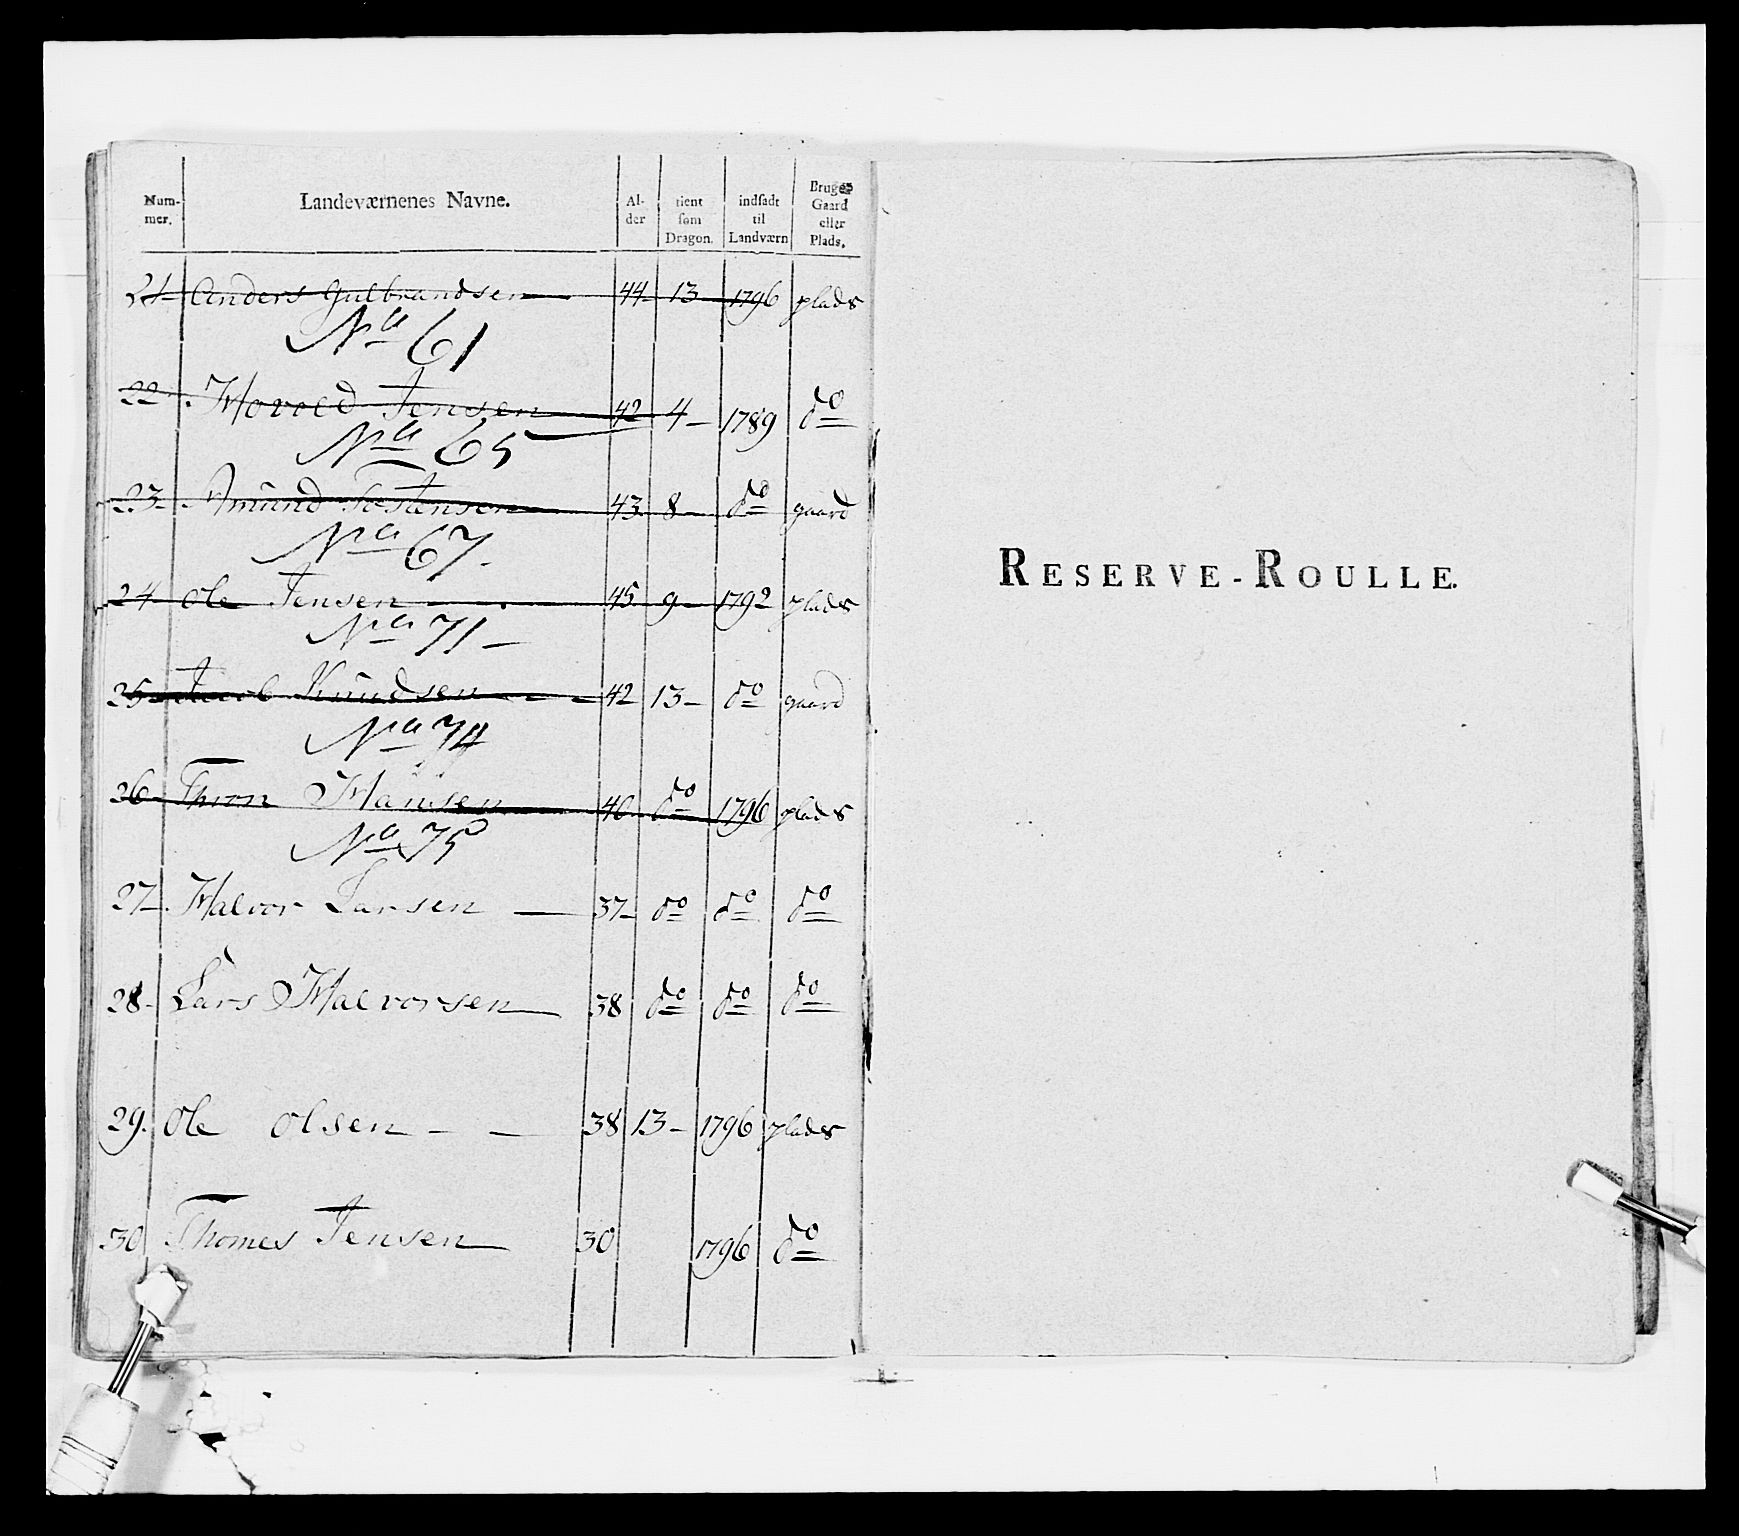 Num-mer. Landeværnenes Navne. Al-der tient som Dragon. indsadt til Landværn Bruger Gaard eller Plads.
21 Anders Gulbrandsen 44 13 1796 plads
Na 61
22 Harald Jensen 42 4 1789 do
Na 65
23 Amund Tostensen 43 8 do gaard
Na 67
24 Ole Jensen 45 9 1792 plads
Na 71
25 Jacob Knudsen 42 13 do gaard
Na 74
26 Thron Hansen 40 do 1796 plads
Na 75
27 Halvor Larsen 37 do do do
28 Lars Halvorsen 38 do do do
29. Ole Olsen 38 13 1796 plads
30 Thomes Jensen 30 1796 do
RESERVE-ROULLE.